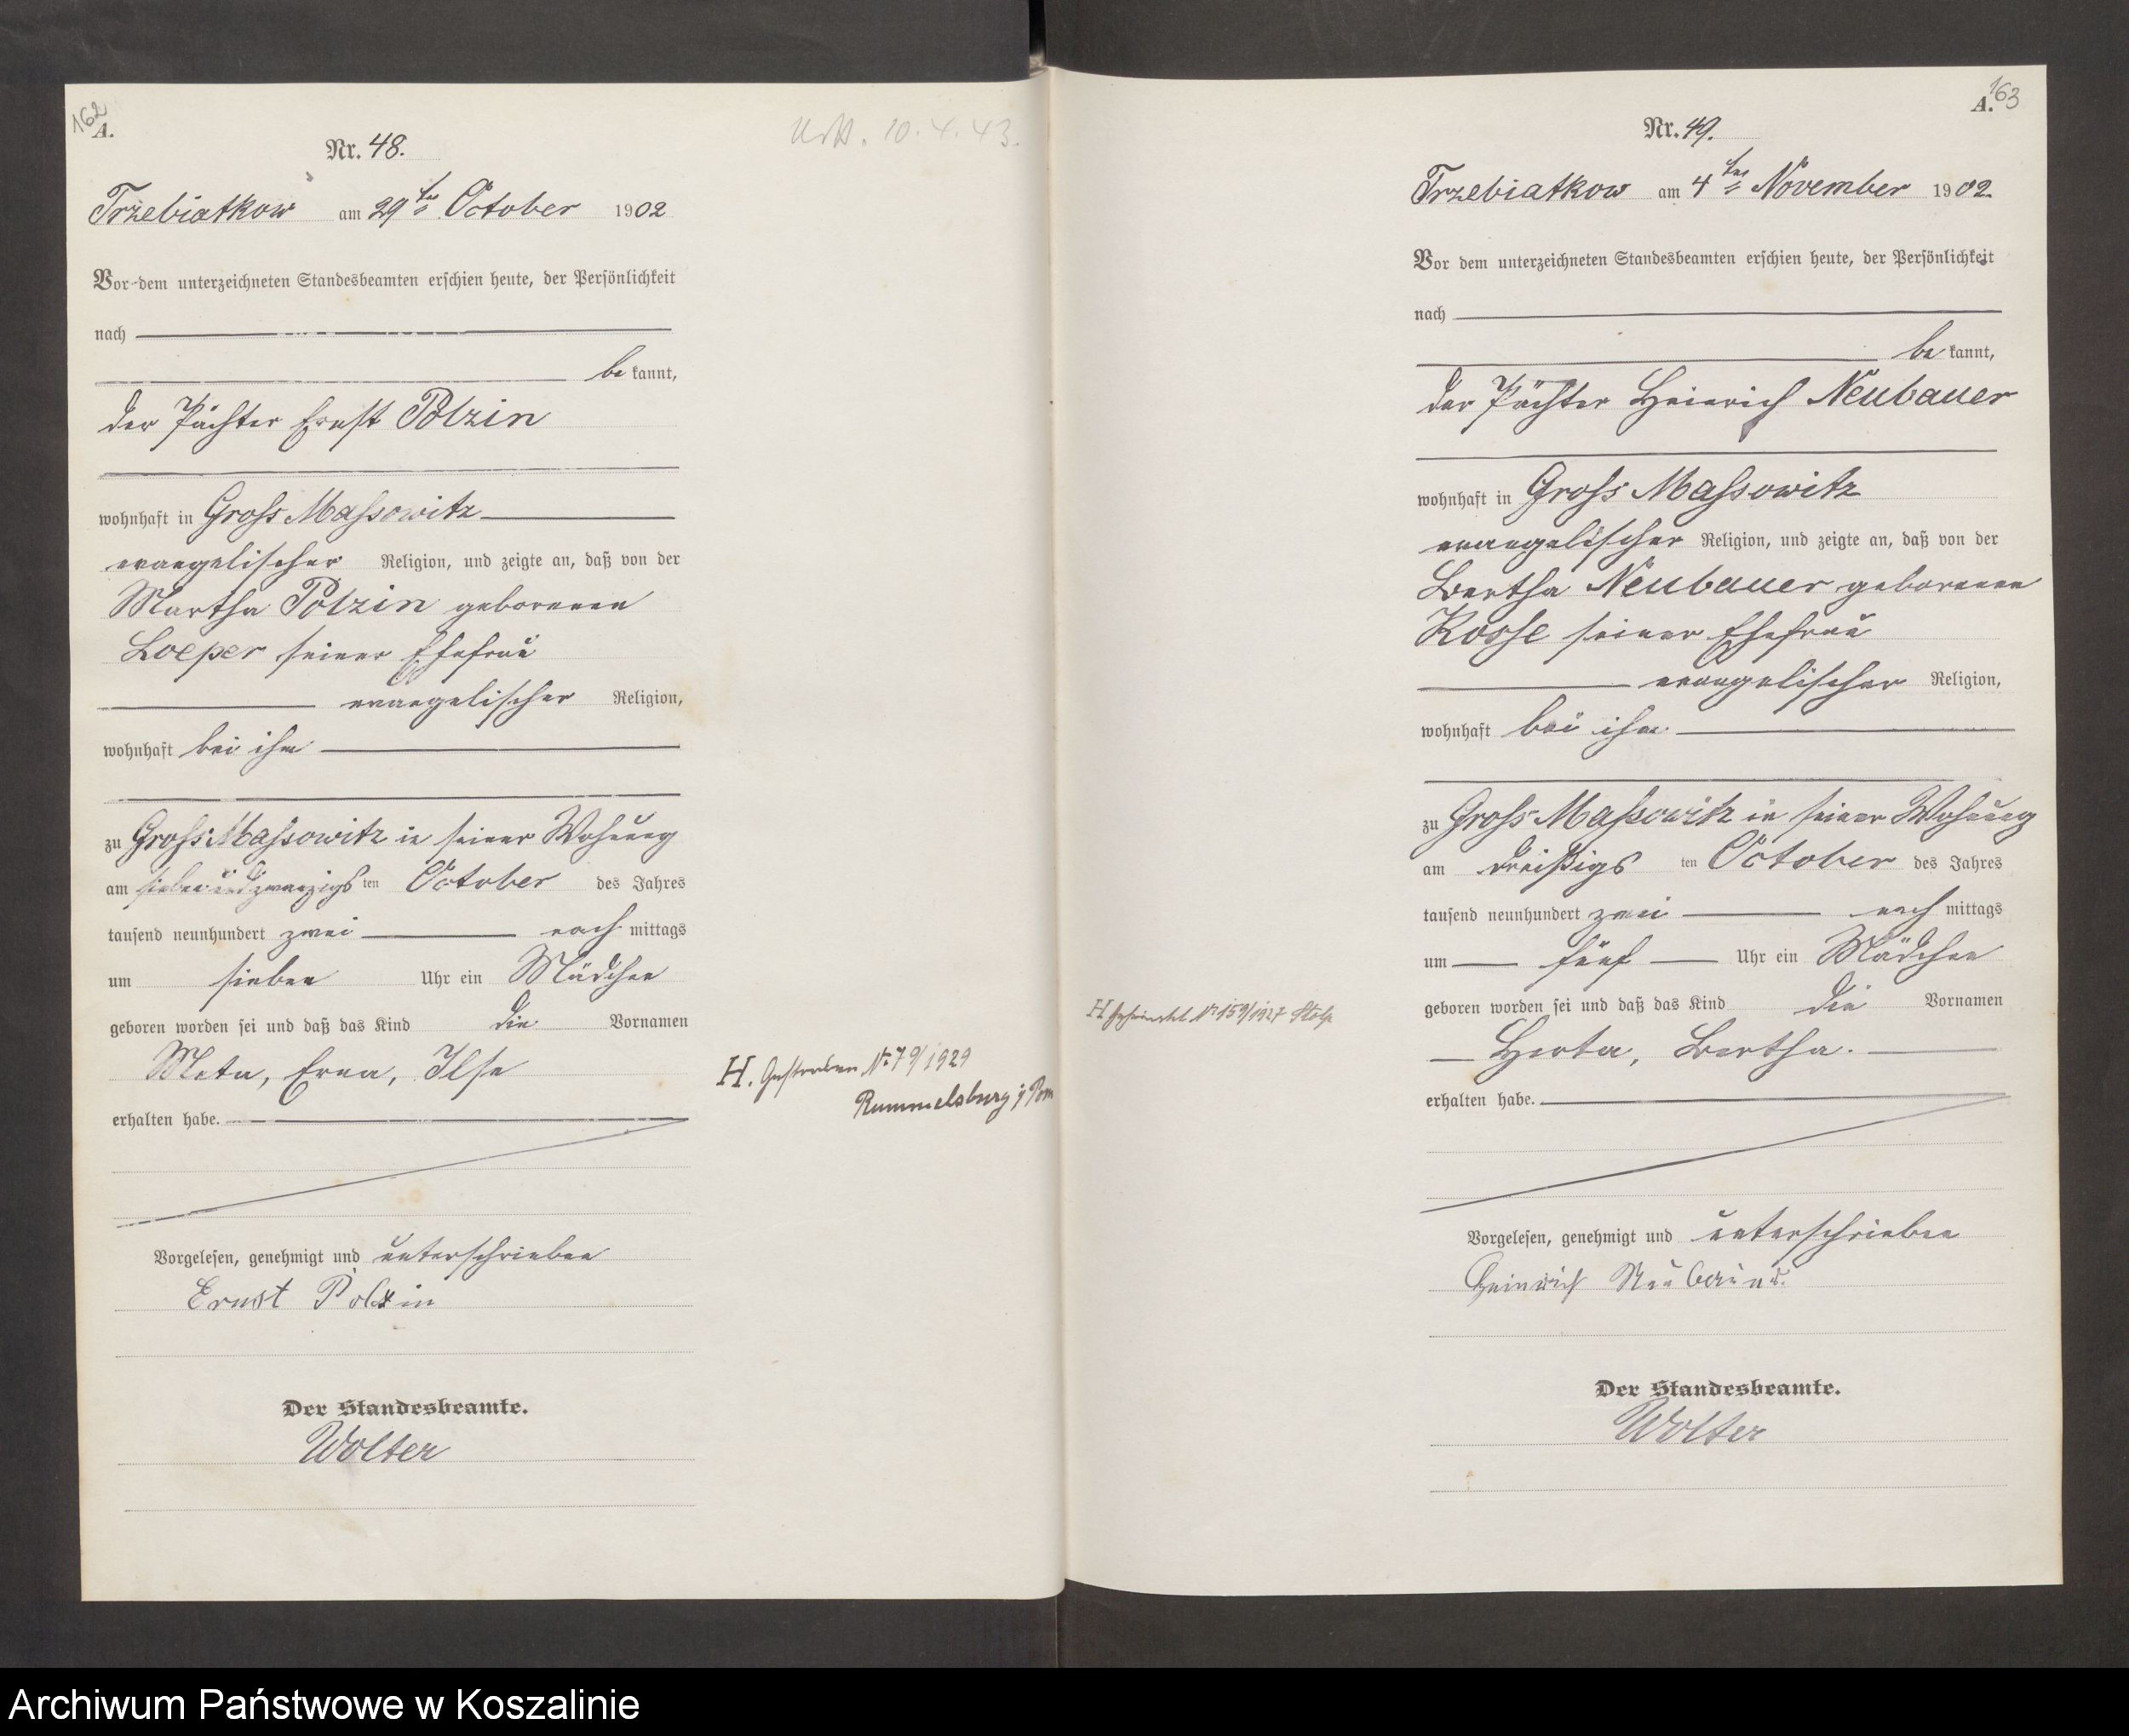 162
A.
Nr. 48.
Trzebiatkow am 29ten October 1902
Vor dem unterzeichneten Standesbeamten erschien heute, der Persönlichkeit
nach
be kannt,
der Pächter Ernst Polzin
wohnhaft in Gross Massowitz
evangelischer Religion, und zeigte an, daß von der
Martha Polzin geborenen
Loeper seiner Ehefrau
evangelischer Religion,
wohnhaft bei ihm
zu Gross Massowitz in seiner Wohnung
am siebenundzwanzigsten October des Jahres
tausend neunhundert zwei nach mittags
um sieben Uhr ein Mädchen
geboren worden sei und daß das Kind die Vornamen
Meta, Erna, Ilse
erhalten habe.
Vorgelesen, genehmigt und unterschrieben
Ernst Polzin
Der Standesbeamte.
Wolter
10.4.43.
H. Gestorben Nr. 79/1929
Rummelsburg i Pom
163
A.
Nr. 49.
Trzebiatkow am 4ten November 1902.
Vor dem unterzeichneten Standesbeamten erschien heute, der Persönlichkeit
nach
be kannt,
der Pächter Heinrich Neubauer
wohnhaft in Gross Massowitz
evangelischer Religion, und zeigte an, daß von der
Bertha Neubauer geborenen
Kosse seiner Ehefrau
evangelischer Religion,
wohnhaft bei ihm
zu Gross Massowitz in seiner Wohnung
am dreißigsten October des Jahres
tausend neunhundert zwei nach mittags
um fünf Uhr ein Mädchen
geboren worden sei und daß das Kind die Vornamen
Herta, Bertha.
erhalten habe.
Vorgelesen, genehmigt und unterschrieben
Heinrich Neubauer
Der Standesbeamte.
Wolter
H. Nr. 159/1927 Stolp
Archiwum Państwowe w Koszalinie